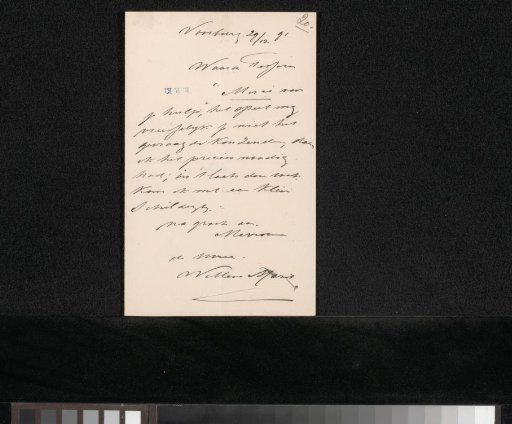 20.
Voorburg 29/12 91
Waarde Tersteeg
"Merci voor
je hulp", het speet mij
vreeselijk je niet het
gevraagde te zenden, daar
ik het precies noodig
had; in 't laatst der week
kom ik met een klein
schilderijtje.
na groete aan
Mevrouw
de uwe
Willem Maris